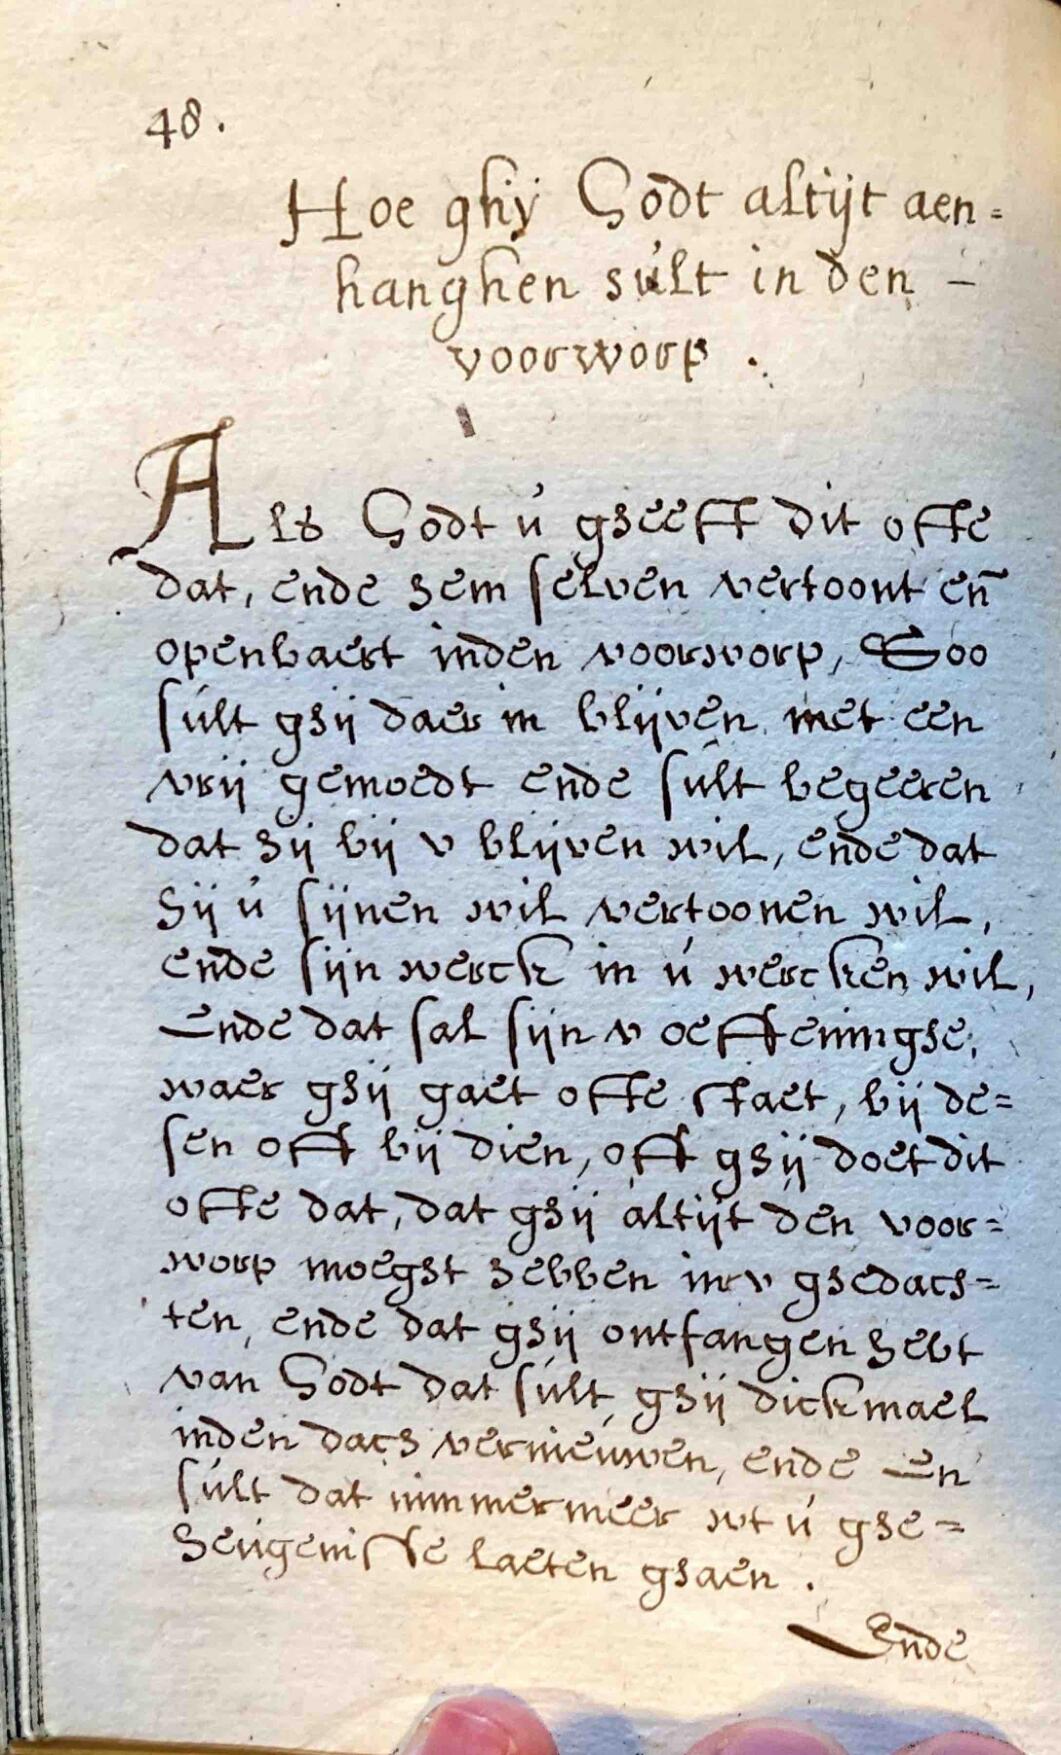 48.
Hoe ghij Godt altijt aen=
hanghen sult in den –
voorworp .
Als Godt ú gheefft dit offe
dat, ende hem selven vertoont en̄
openbaert inden voorworp, Soo
súlt ghij daer in blijven met een
vrij gemoedt ende sult begeeren
dat hij bij v blijven wil, ende dat
hij ú sijnen wil vertoonen wil,
ende sijn werck in ú wercken wil,
Ende dat sal sijn v oeffeninghe,
waer ghij gaet offe staet, bij de=
sen offt bij dien, offt ghij doet dit
offe dat, dat ghij altijt den voor=
worp moeght hebben in v ghedach=
ten, ende dat ghij ontfangen hebt
van Godt dat súlt ghij dickmael
inden dach vernieúwen, ende en
súlt dat nimmermeer wt ú ghe=
heúgenisse laeten ghaen .
Ende